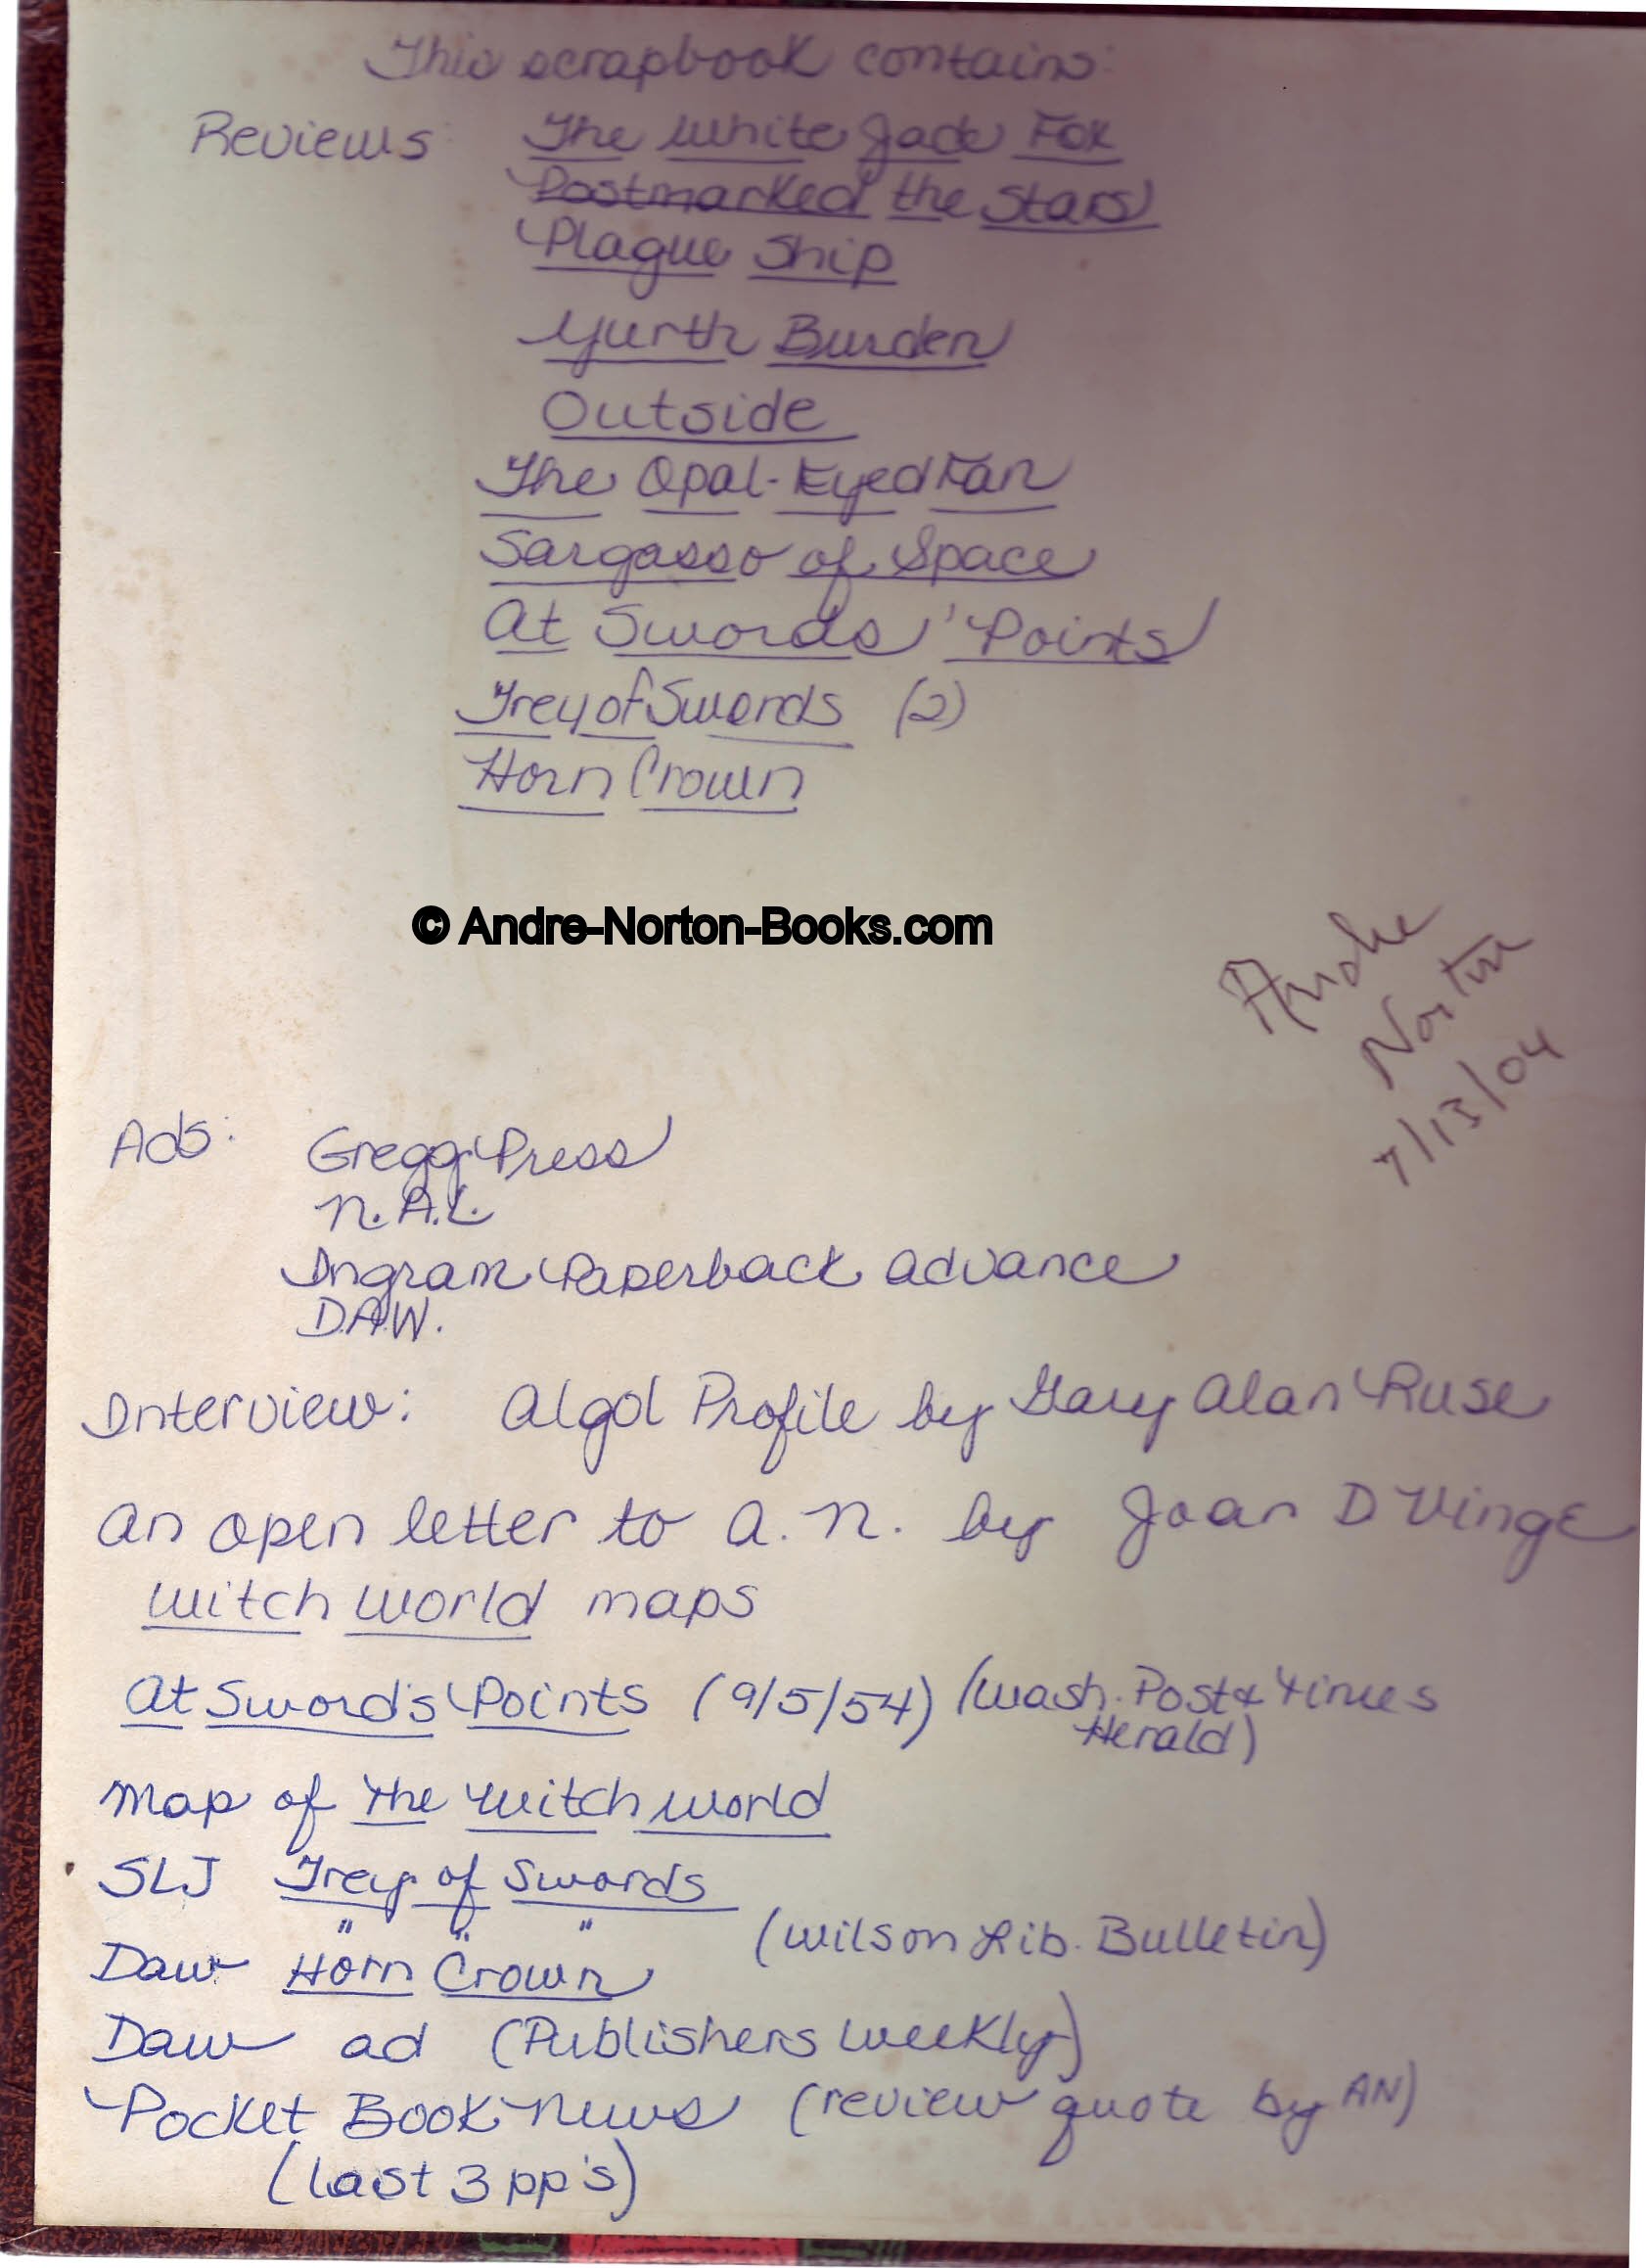 This scrapbook contains:
Reviews: The White Jade Fox
Postmarked the Stars
Plague Ship
Yurth Burden
Outside
The Opal-Eyed Fan
Sargasso of Space
At Swords' Points
Trey of Swords (2)
Horn Crown
© Andre-Norton-Books.com
Andre
Norton
7/13/04
Ads: Gregg Press
N.A.L.
Ingram Paperback advance
D.A.W.
Interview: Algol Profile by Gary Alan Ruse
An open letter to A.N. by Joan D Vinge
Witch World maps
At Sword's Points (9/5/54) (Wash. Post & Times
Herald)
Map of the Witch World
SLJ Trey of Swords
" " " (Wilson Lib. Bulletin)
Daw Horn Crown
Daw ad (Publishers Weekly)
Pocket Book News (review quote by AN)
(last 3 pp's)